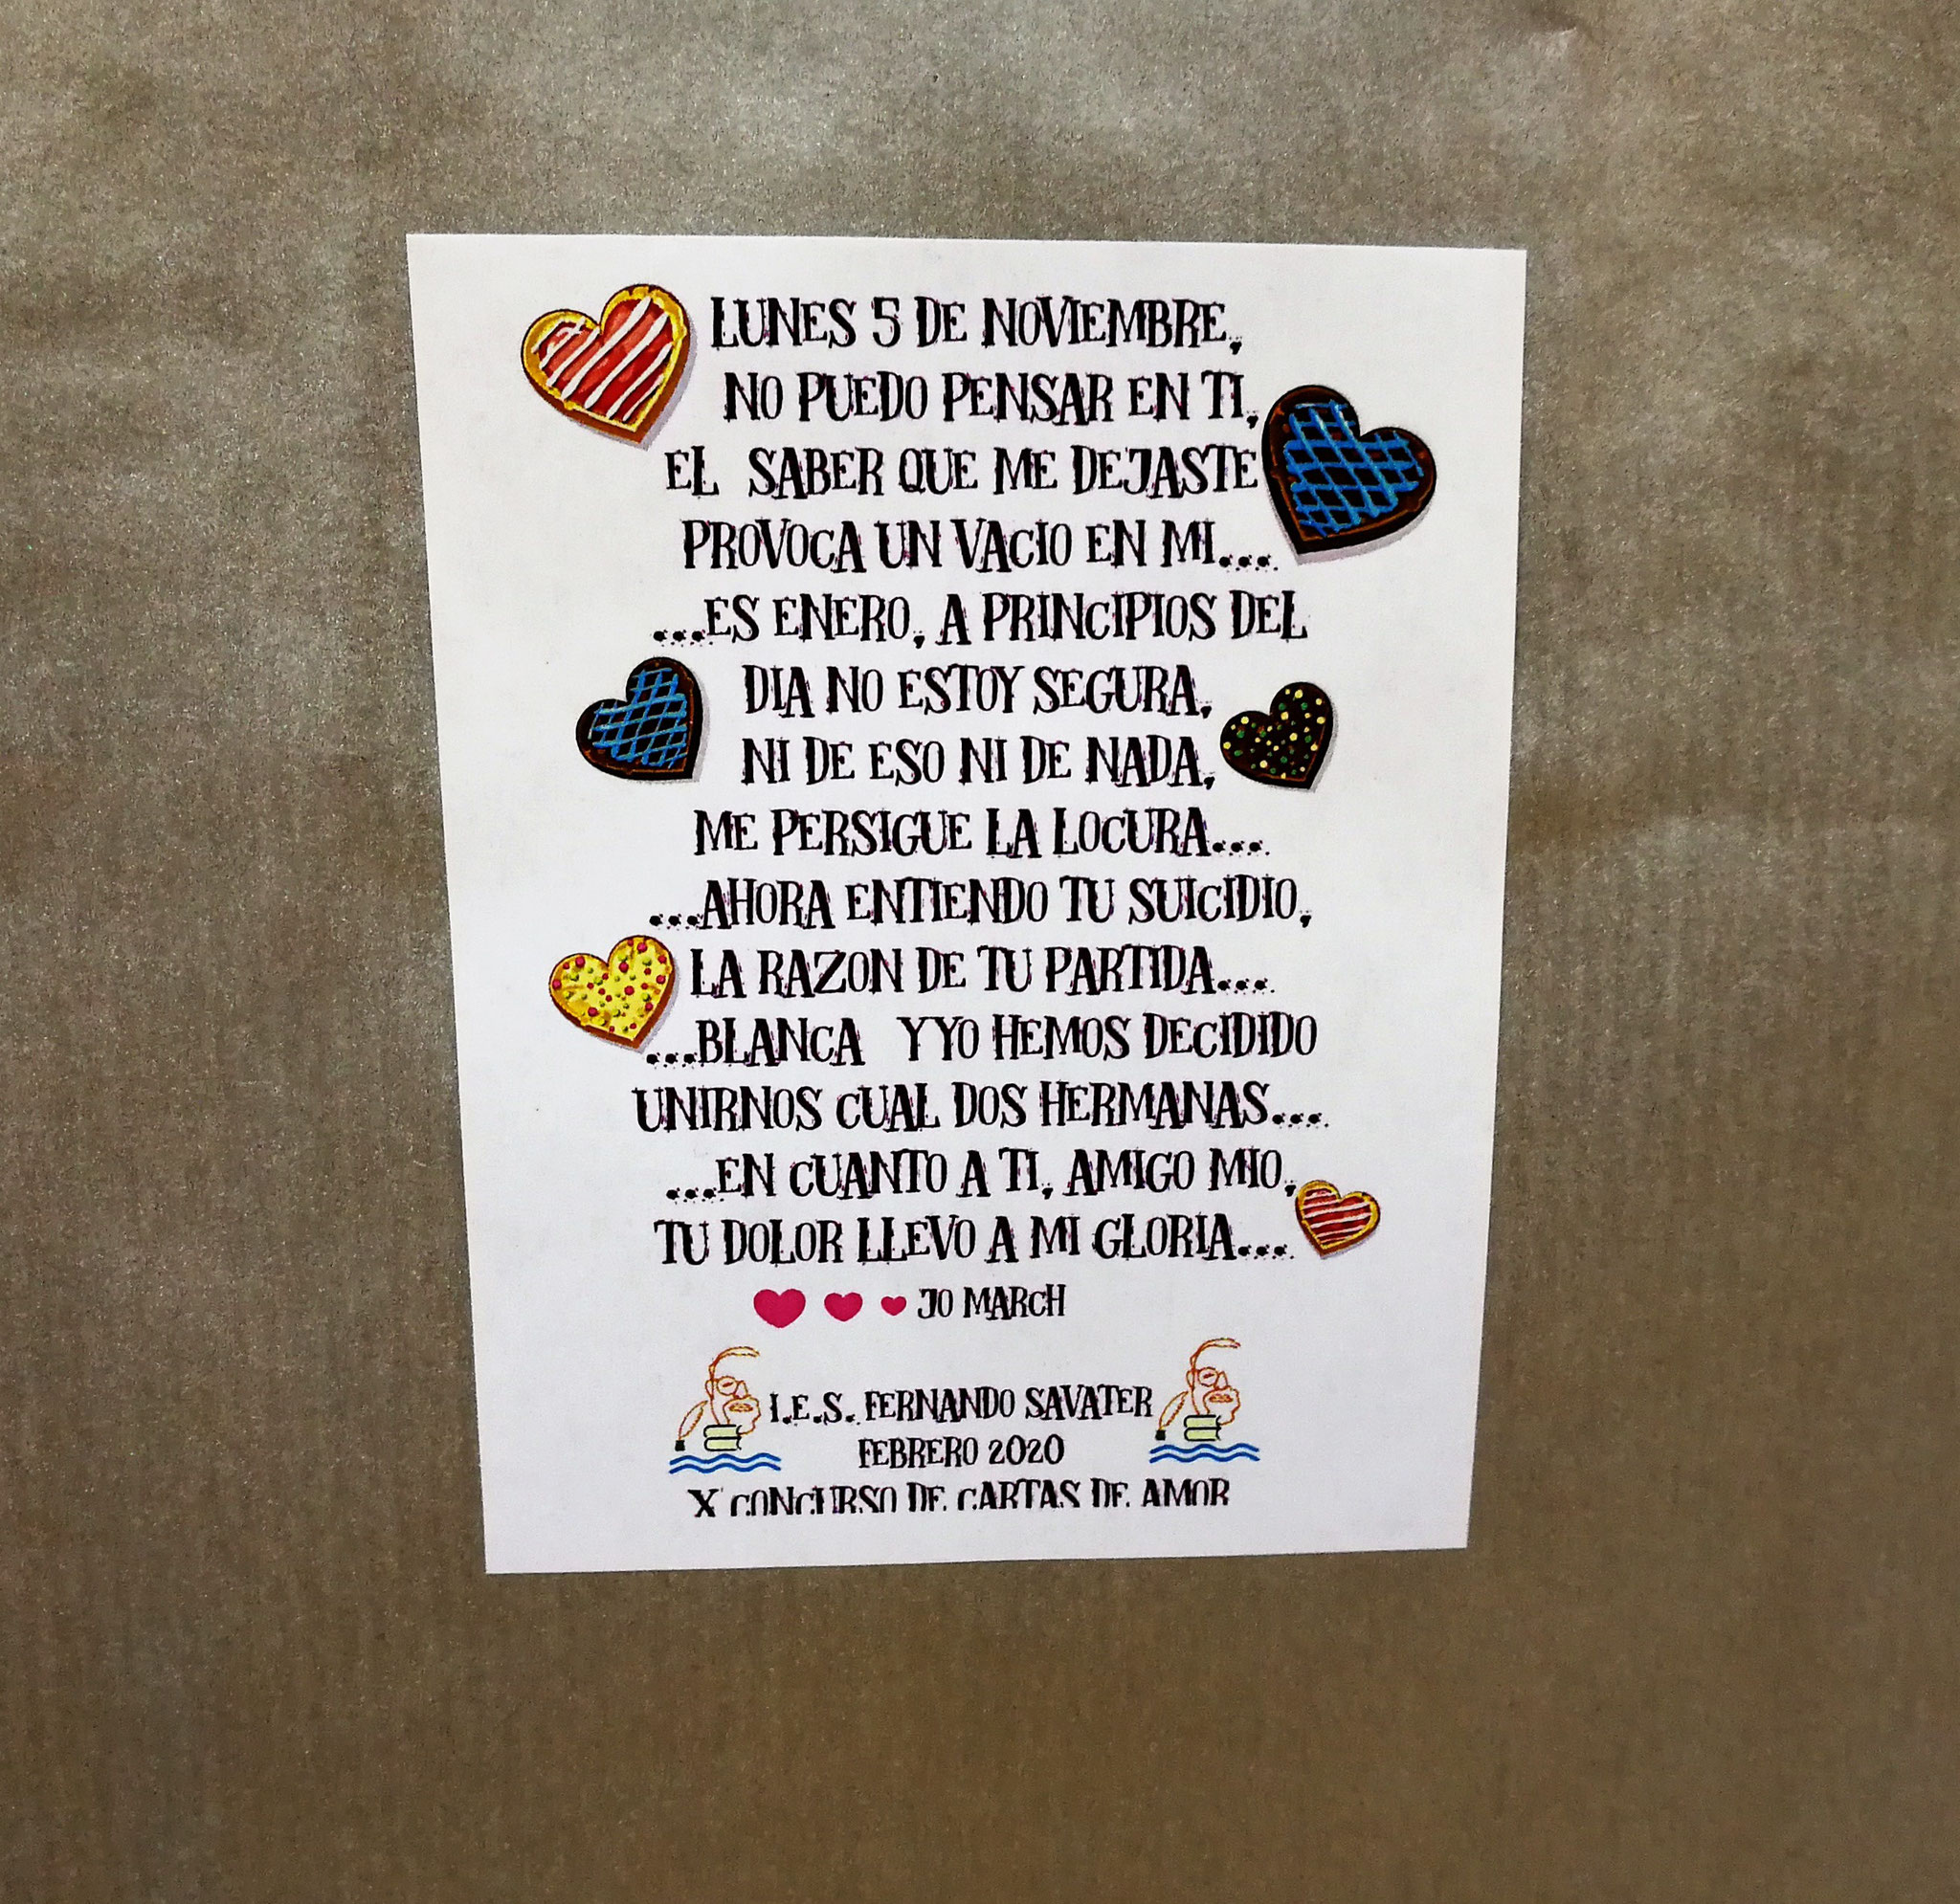 LUNES 5 DE NOVIEMBRE,
NO PUEDO PENSAR EN TI,
EL SABER QUE ME DEJASTE
PROVOCA UN VACIO EN MI....
...ES ENERO, A PRINCIPIOS DEL
DIA NO ESTOY SEGURA,
NI DE ESO NI DE NADA,
ME PERSIGUE LA LOCURA....
...AHORA ENTIENDO TU SUICIDIO,
LA RAZON DE TU PARTIDA....
...BLANCA Y YO HEMOS DECIDIDO
UNIRNOS CUAL DOS HERMANAS....
...EN CUANTO A TI, AMIGO MIO,
TU DOLOR LLEVO A MI GLORIA....
JO MARCH
I.E.S. FERNANDO SAVATER
FEBRERO 2020
X CONCURSO DE CARTAS DE AMOR